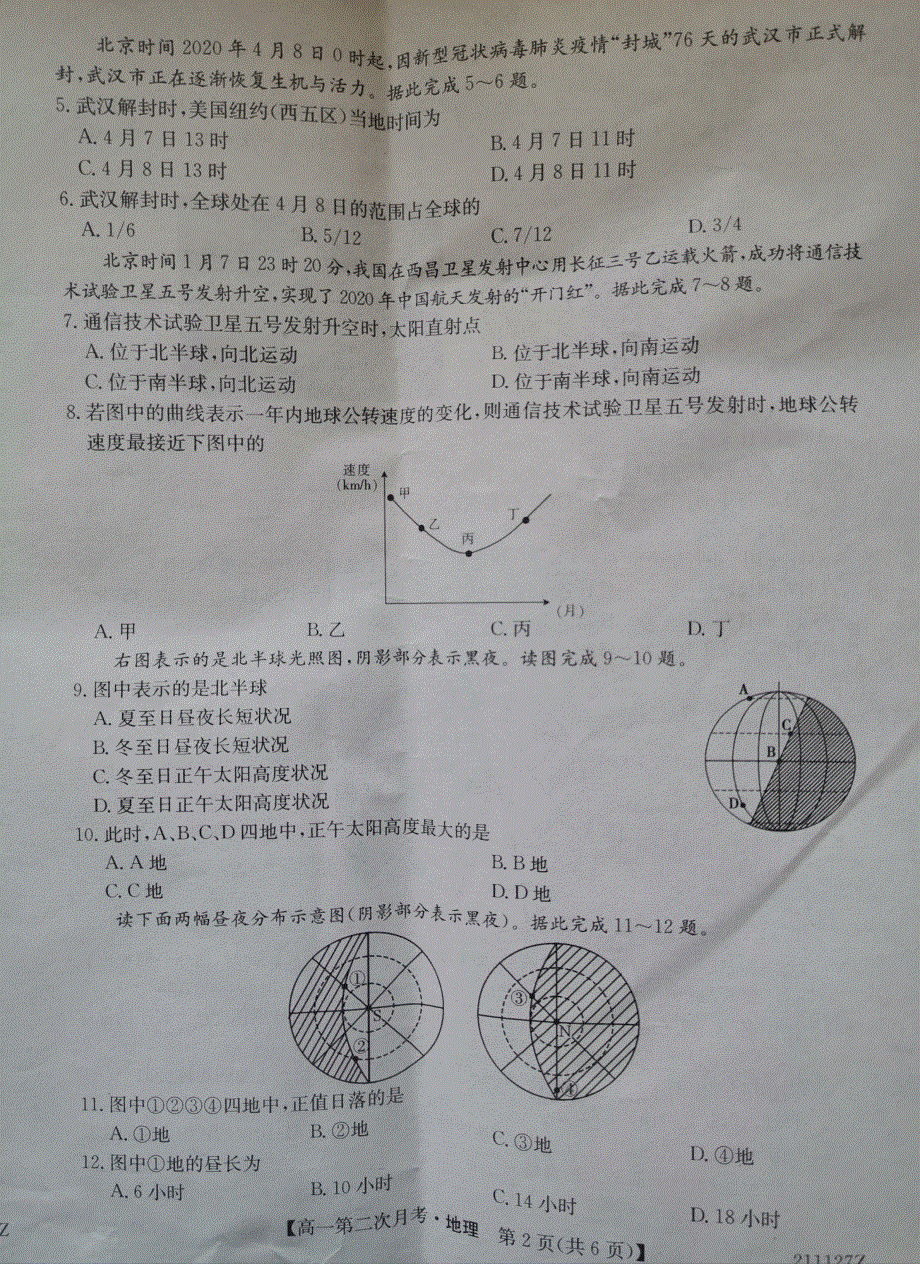 北京时间2020年4月8日0时起,因新型冠状病毒肺炎疫情“封城”76天的武汉市正式解
封,武汉市正在逐渐恢复生机与活力。据此完成5～6题。
5. 武汉解封时,美国纽约(西五区)当地时间为
A. 4月7日13时
B. 4月7日11时
C. 4月8日13时
D. 4月8日11时
6. 武汉解封时,全球处在4月8日的范围占全球的
A. 1/6
B. 5/12
C. 7/12
D. 3/4
北京时间1月7日23时20分,我国在西昌卫星发射中心用长征三号乙运载火箭,成功将通信技
术试验卫星五号发射升空,实现了2020年中国航天发射的“开门红”。据此完成7～8题。
7. 通信技术试验卫星五号发射升空时,太阳直射点
A. 位于北半球,向北运动
B. 位于北半球,向南运动
C. 位于南半球,向北运动
D. 位于南半球,向南运动
8. 若图中的曲线表示一年内地球公转速度的变化,则通信技术试验卫星五号发射时,地球公转
速度最接近下图中的
速度
(km/h)
甲
乙
丙
丁
(月)
A. 甲
B. 乙
C. 丙
D. 丁
右图表示的是北半球光照图,阴影部分表示黑夜。读图完成9～10题。
9. 图中表示的是北半球
A. 夏至日昼夜长短状况
B. 冬至日昼夜长短状况
C. 冬至日正午太阳高度状况
D. 夏至日正午太阳高度状况
A
C
B
D
10. 此时,A、B、C、D四地中,正午太阳高度最大的是
A. A地
B. B地
C. C地
D. D地
读下面两幅昼夜分布示意图(阴影部分表示黑夜)。据此完成11～12题。
①
S
②
③
N
④
11. 图中①②③④四地中,正值日落的是
A. ①地
B. ②地
C. ③地
D. ④地
12. 图中①地的昼长为
A. 6小时
B. 10小时
C. 14小时
D. 18小时
【高一第二次月考·地理 第2页(共6页)】
Z
211127Z